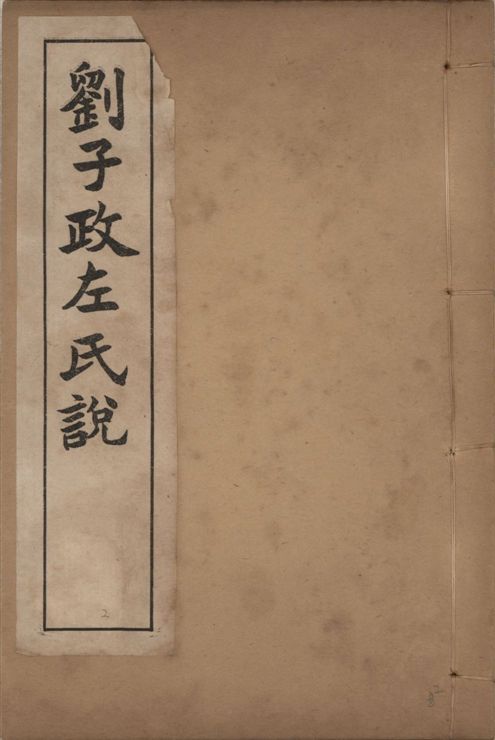 劉子政左氏說
2